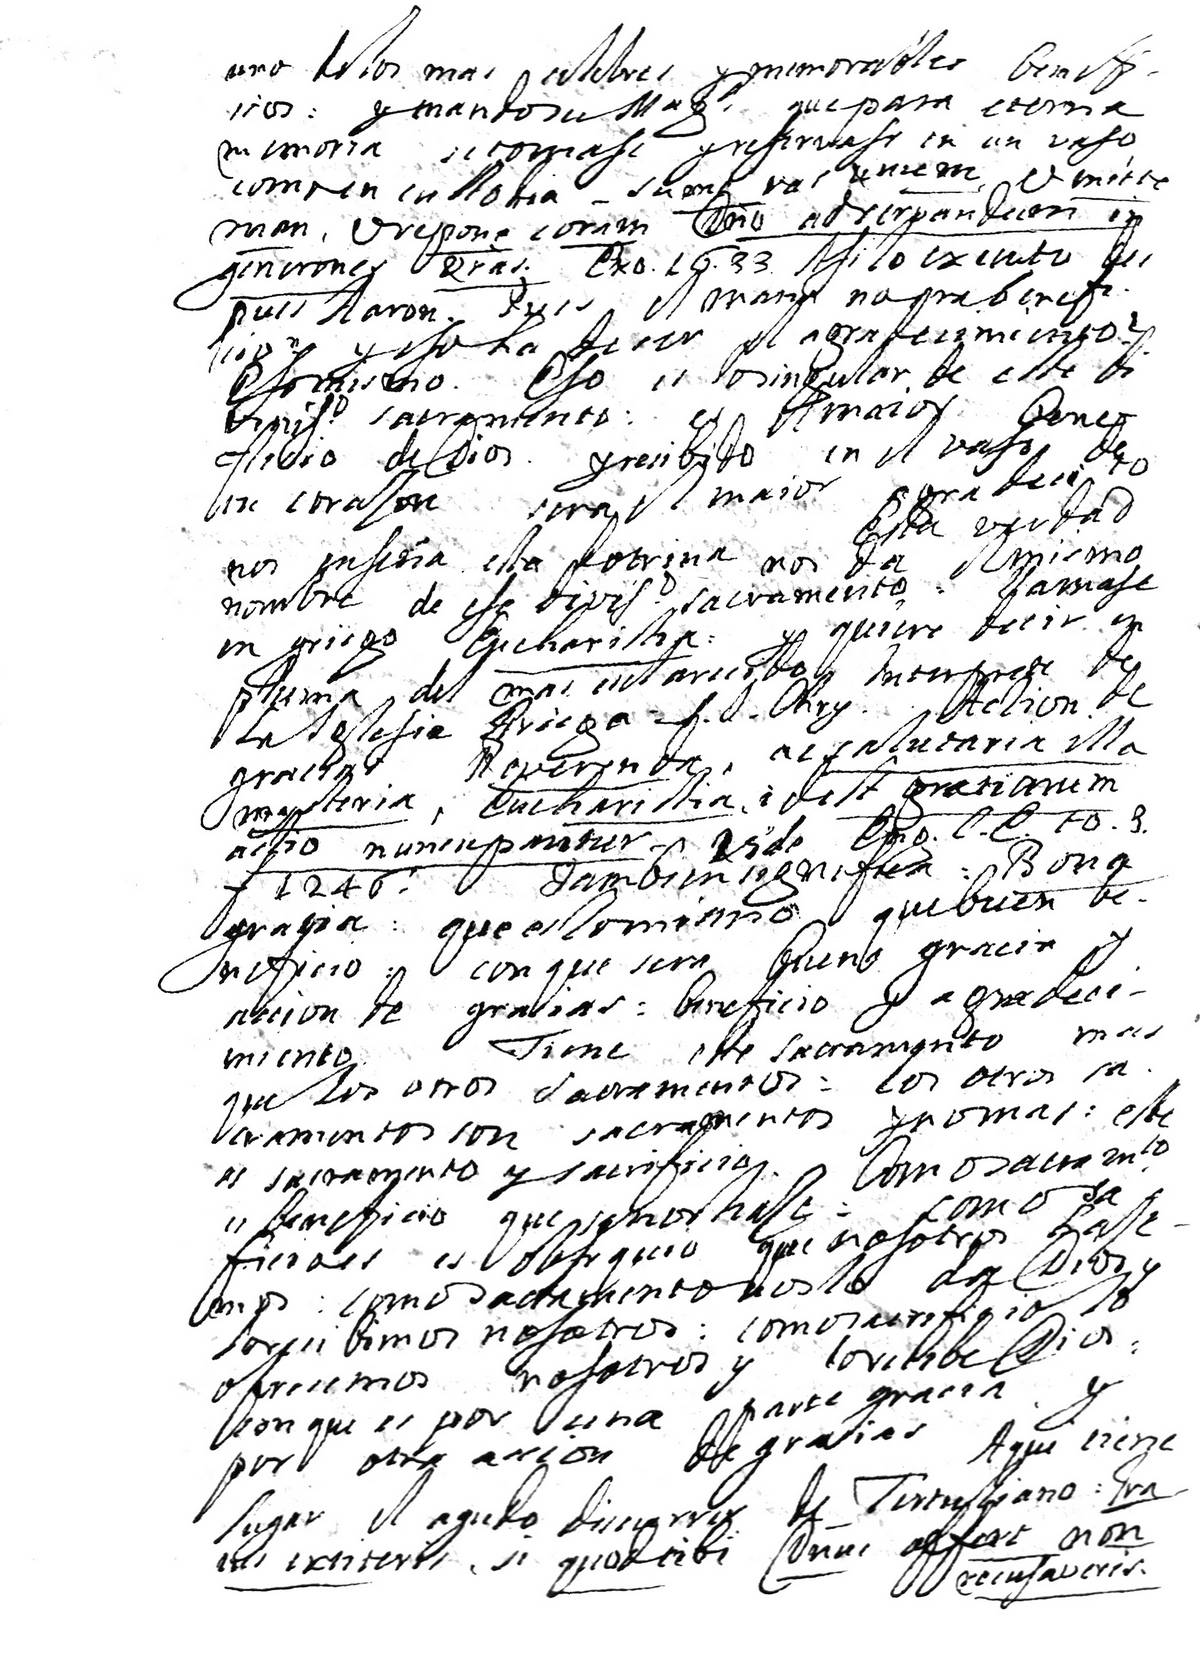 uno de los mas celebres y memorables benefi-
cios: y mando su Magd. que para eterna
memoria se tomase y reservase en un vaso
como en custodia - sume vas unum, & mitte
man, & repone coram Dño ad servandum in
generones vras. Exo. 16.33. Asi lo executo des
pues Aaron. Pues el mana no fue benefi
cio? y eso ha de ser el agradecimiento?
Eso mismo. Eso es lo singular de este di
viniso. sacramento: es el maior bene
ficio de Dios. y recibido en el vaso de
tu corason sera el maior agradecito
Esta verdad
nos enseña esta dotrina nos da el mismo
nombre de ese divisso. sacramento: llamase
en griego Eucharistia: y quiere decir en
pluma del mas esclarecido Interprete de
la Iglesia Griega - S. J. Chry. Action de
gracias Reverenda, ac salutaria illa
mysteria, Eucharistia, idest gratiarum
actio nuncupantur - Vide to. 3.
f 1246. Tambien significa: Bona
gracia: que es lo mismo que buen be-
neficio: con que sera buena gracia y
accion de gracias: beneficio y agradeci-
miento. Tiene este sacramento mas
que los otros sacramentos: los otros sa
cramentos son sacramentos y no mas: este
es sacramento y sacrificio. Como sacramto.
es beneficio que se nos hase: como sa
ficio es obsequio que nosotros hase-
mos: como sacramento nos lo da Dios y
lo recibimos nosotros: como sacrificio lo
ofrecemos nosotros y lo recibe Dios:
con que es por una parte gracia y
por otra accion de gracias Aqui tiene
lugar el agudo discurrir de Tertuliano: Gra
tus extiteris, si quod tibi Dñus offert non
recusaveris.